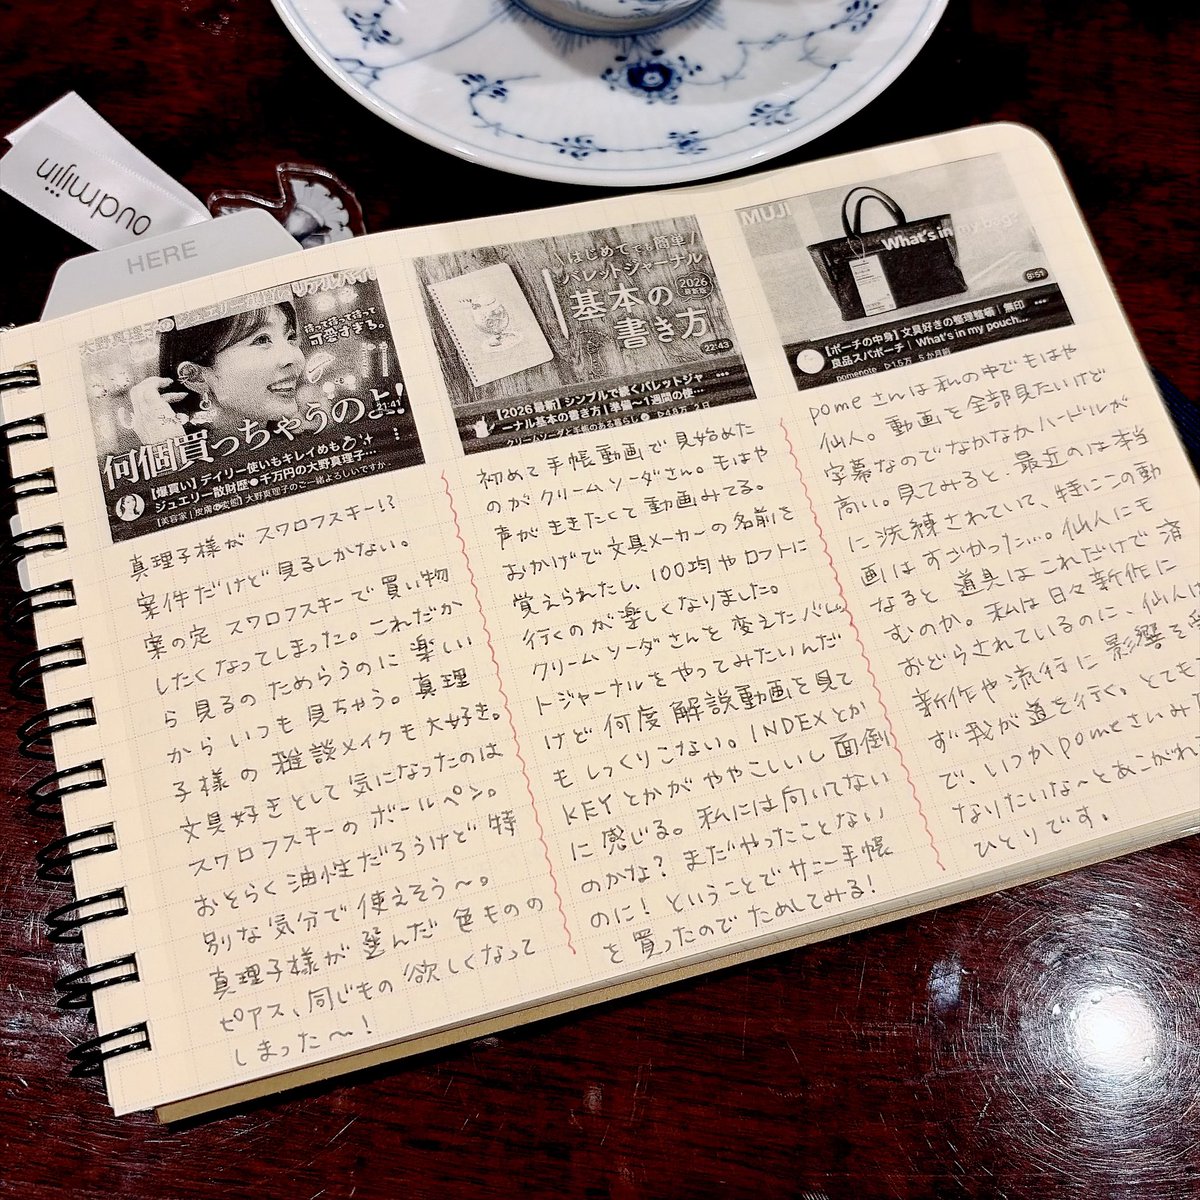 oudmijin
HERE
大野真理子の
リアルバイ
待って待って待って
可愛すぎる。
何個買っちゃうのよ!
21:41
【爆買い】デイリー使いもキレイめも
ジュエリー散財歴●千万円の大野真理子…
【美容家 | 皮膚の変態】大野真理子のご一緒よろしいですか
真理子様がスワロフスキー!?
案件だけど見るしかない。
案の定スワロフスキーで買い物
したくなってしまった。これだか
ら見るのためらうのに楽しい
からいつも見ちゃう。真理
子様の雑談メイクも大好き。
文具好きとして気になったのは
スワロフスキーのボールペン。
おそらく油性だろうけど特
別な気分で使えそう〜。
真理子様が選んだ色ものの
ピアス、同じもの欲しくなって
しまった〜!
はじめてでも簡単
バレットジャーナル
基本の
書き方
2026
最新版
22:43
【2026最新】シンプルで続くバレットジャ
ーナル基本の書き方 | 準備〜1週間の使…
クリームソーダと手帳のある暮らし
初めて手帳動画で見始めた
のがクリームソーダさん。もはや
声がききたくて動画みてる。
おかげで文具メーカーの名前を
覚えられたし、100均やロフトに
行くのが楽しくなりました。
クリームソーダさんを変えたバレッ
トジャーナルをやってみたいんだ
けど何度解説動画を見て
もしっくりこない。INDEXとか
KEYとかがややこしいし面倒
に感じる。私には向いてない
のかな?まだやったことない
のに!ということでサニー手帳
を買ったのでためしてみる!
MUJI
What's in my bag?
8:51
【ポーチの中身】文具好きの整理整頓 | 無印
良品スパポーチ | What's in my pouch…
pomenote ▷1.5万 5か月前
pomeさんは私の中でもはや
仙人。動画を全部見たいけど
字幕なのでなかなかハードルが
高い。見てみると、最近のは本当
に洗練されていて、特にこの動
画はすごかった…。仙人にも
なると道具はこれだけで済
むのか。私は日々新作に
おどらされているのに、仙人は
新作や流行に影響を受
ず我が道を行く。とても
で、いつかpomeさいみ
なりたいな〜とあこがれ
ひとりです。